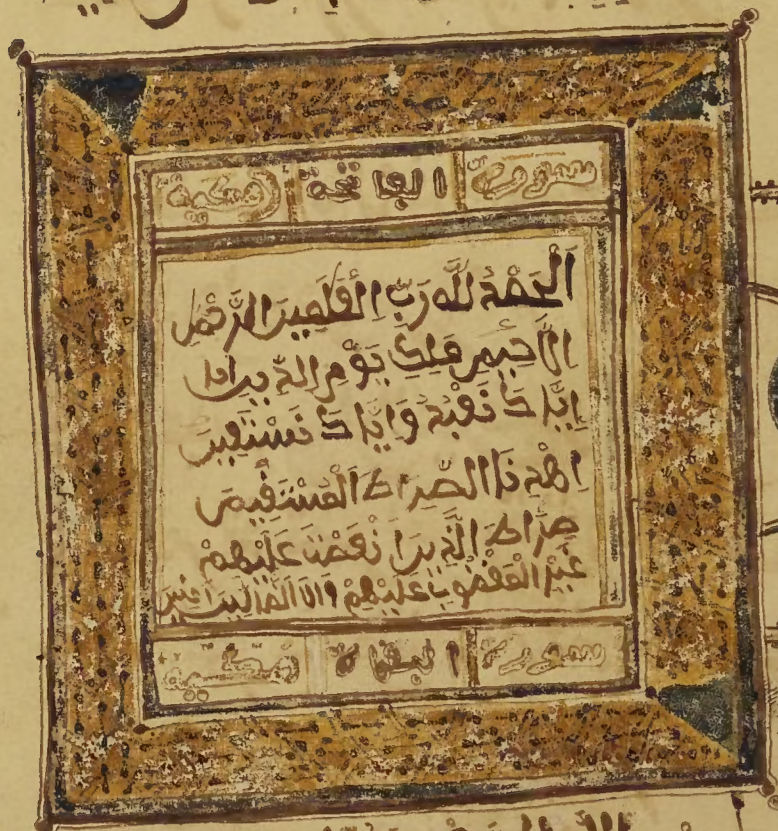 سورة الفاتحة مكية
اَلْحَمْدُ لِلَّهِ رَبِّ الْعَلَمِينَ الرَّحْمَنِ
الرَّحِيمِ مَلِكِ يَوْمِ الدِّينِ
إِيَّاكَ نَعْبُدُ وَإِيَّاكَ نَسْتَعِينُ
اِهْدِنَا الصِّرَاطَ الْمُسْتَقِيمَ
صِرَاطَ الَّذِينَ أَنْعَمْتَ عَلَيْهِمْ
غَيْرِ الْمَغْضُوبِ عَلَيْهِمْ وَلَا الضَّالِّينَ
سورة